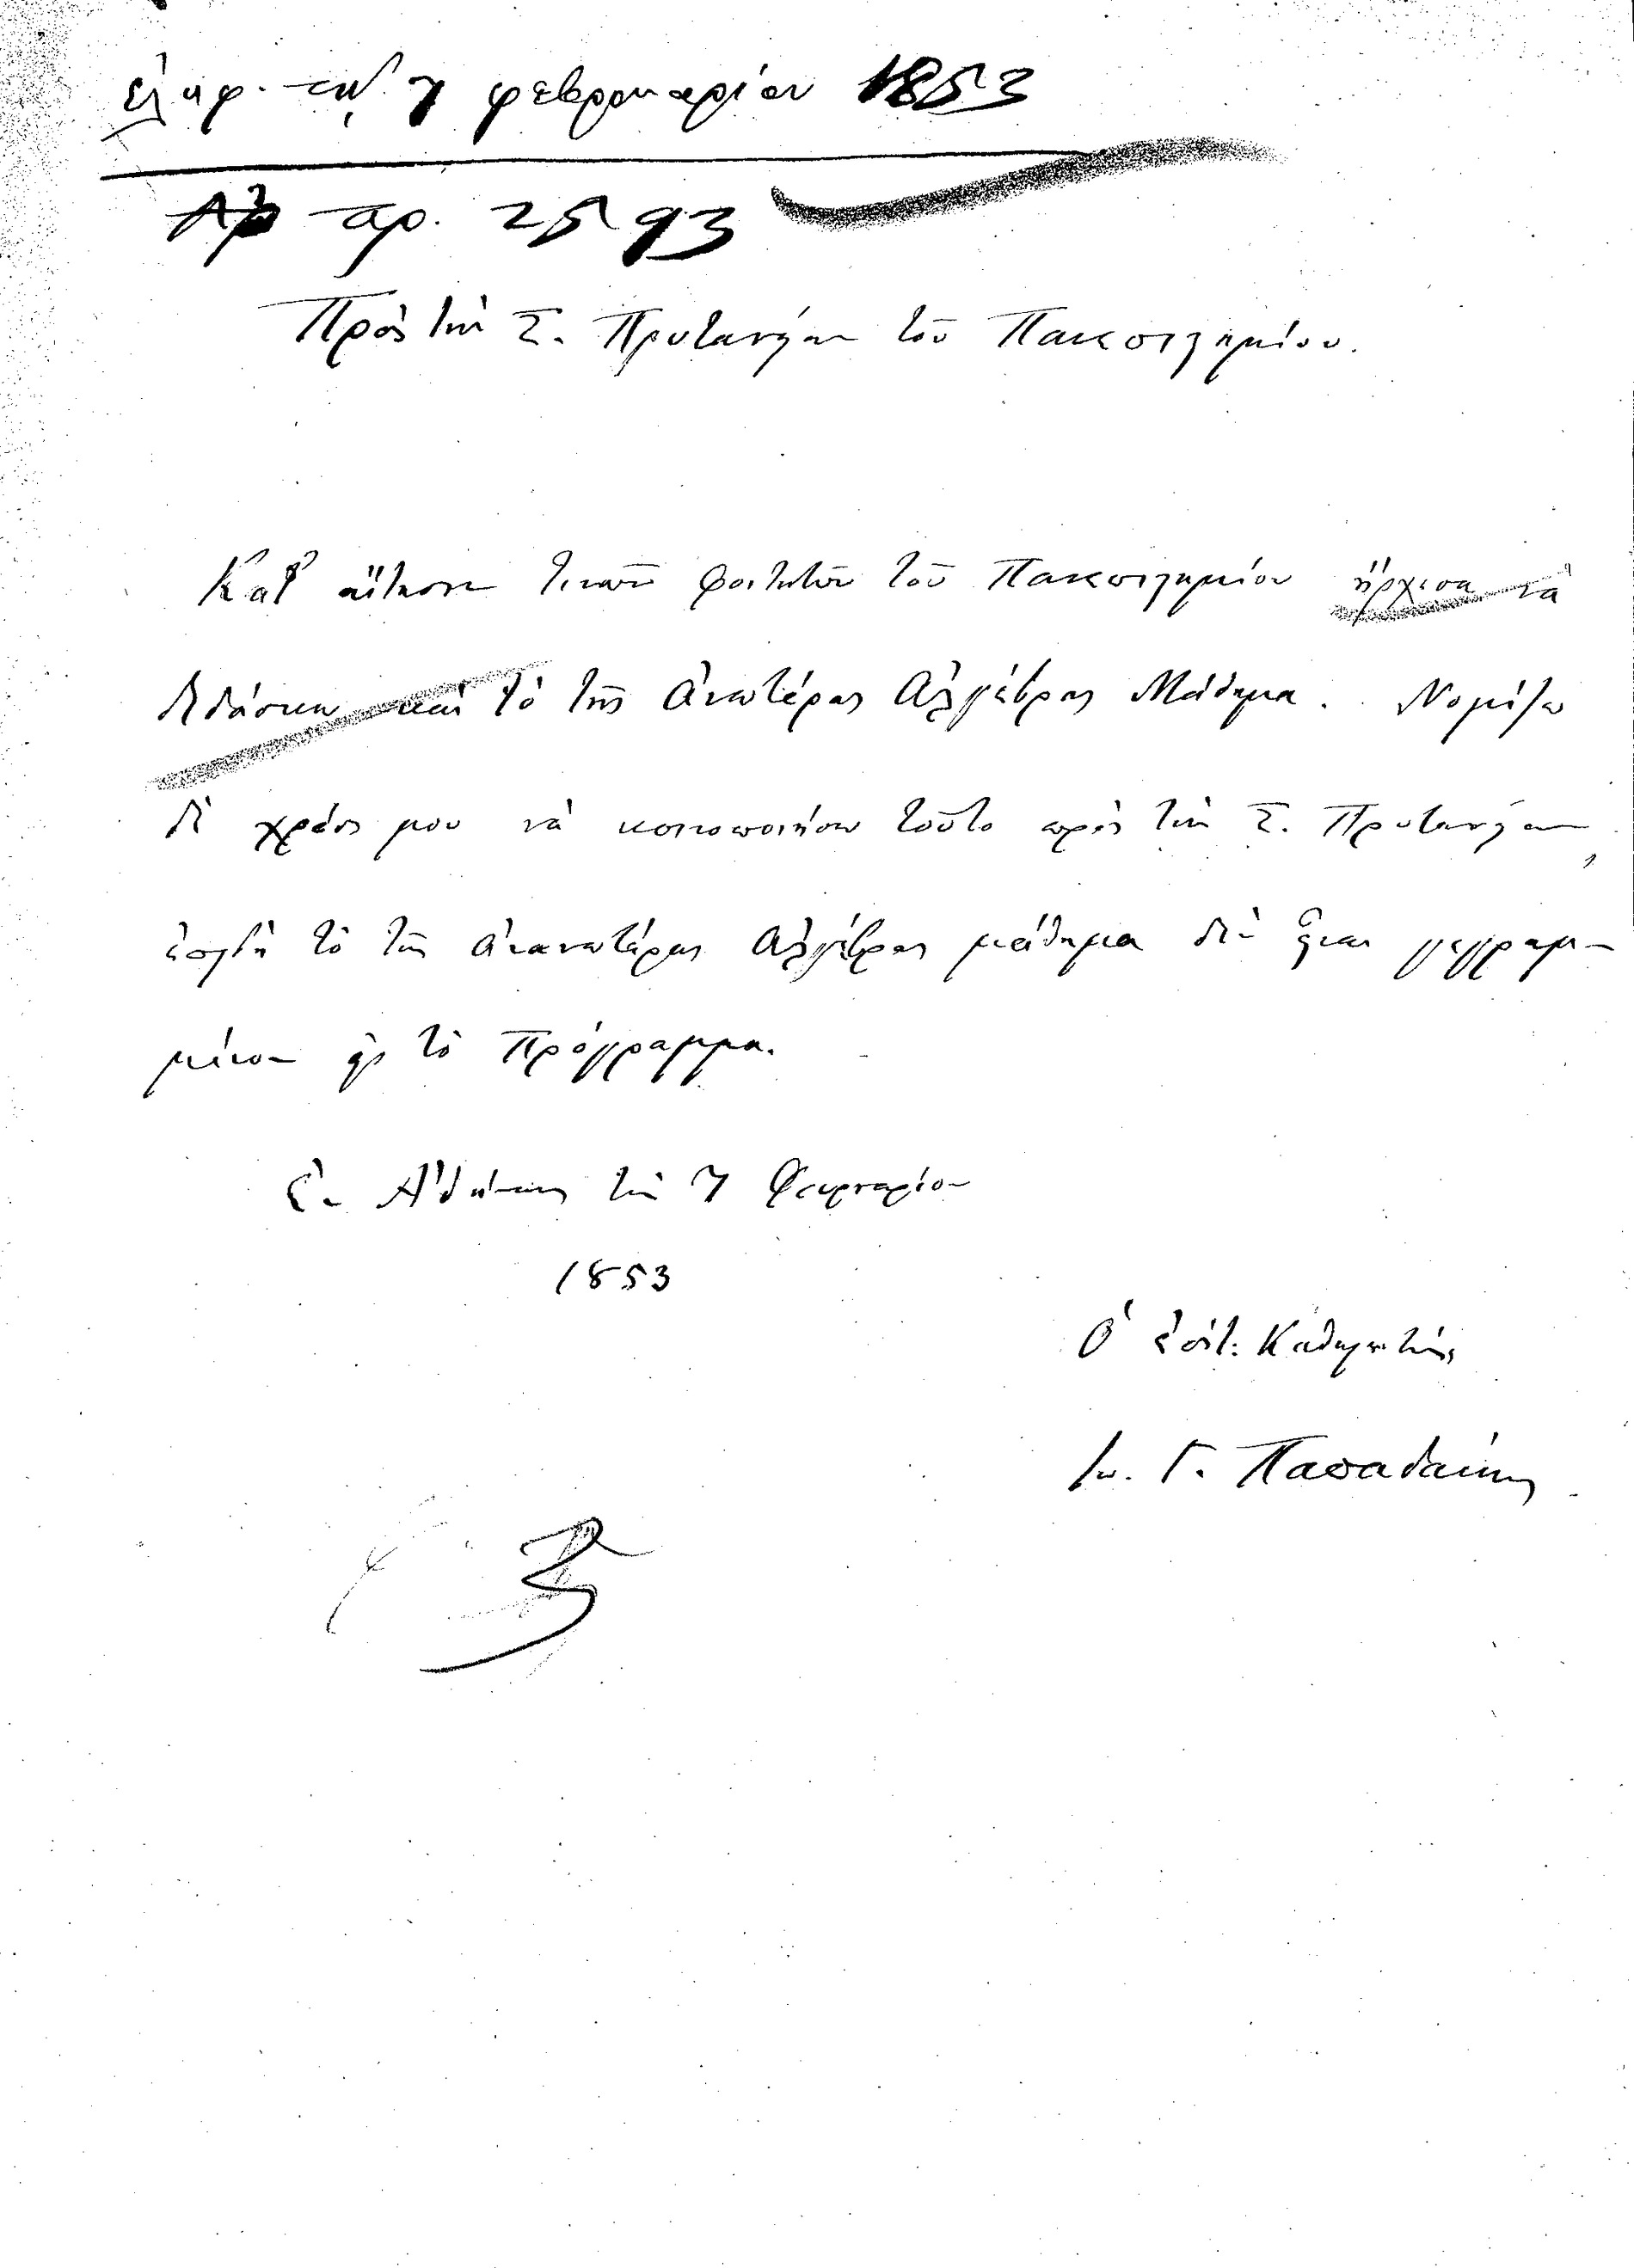 ἐλήφ. τῇ 7 φεβρουαρίου 1853
Ἀρ πρ. 2593
Πρὸς τὴν Σ. Πρυτανείαν τοῦ Πανεπιστημίου.
Κατ' αἴτησιν τινῶν φοιτητῶν τοῦ Πανεπιστημίου ἤρχισα νὰ
διδάσκω καὶ τὸ τῆς ἀνωτέρας ἀλγέβρας Μάθημα. Νομίζω
δὲ χρέος μου νὰ κοινοποιήσω τοῦτο πρὸς τὴν Σ. Πρυτανείαν,
ἐπειδὴ τὸ τῆς ἀνωτέρας ἀλγέβρας μάθημα δὲν εἶναι γεγραμ-
μένον εἰς τὸ Πρόγραμμα.
Ἐν Ἀθήναις τὴν 7 Φεβρουαρίου
1853
Ὁ ἐπίτ. Καθηγητὴς
Ἰω. Γ. Παπαδάκης